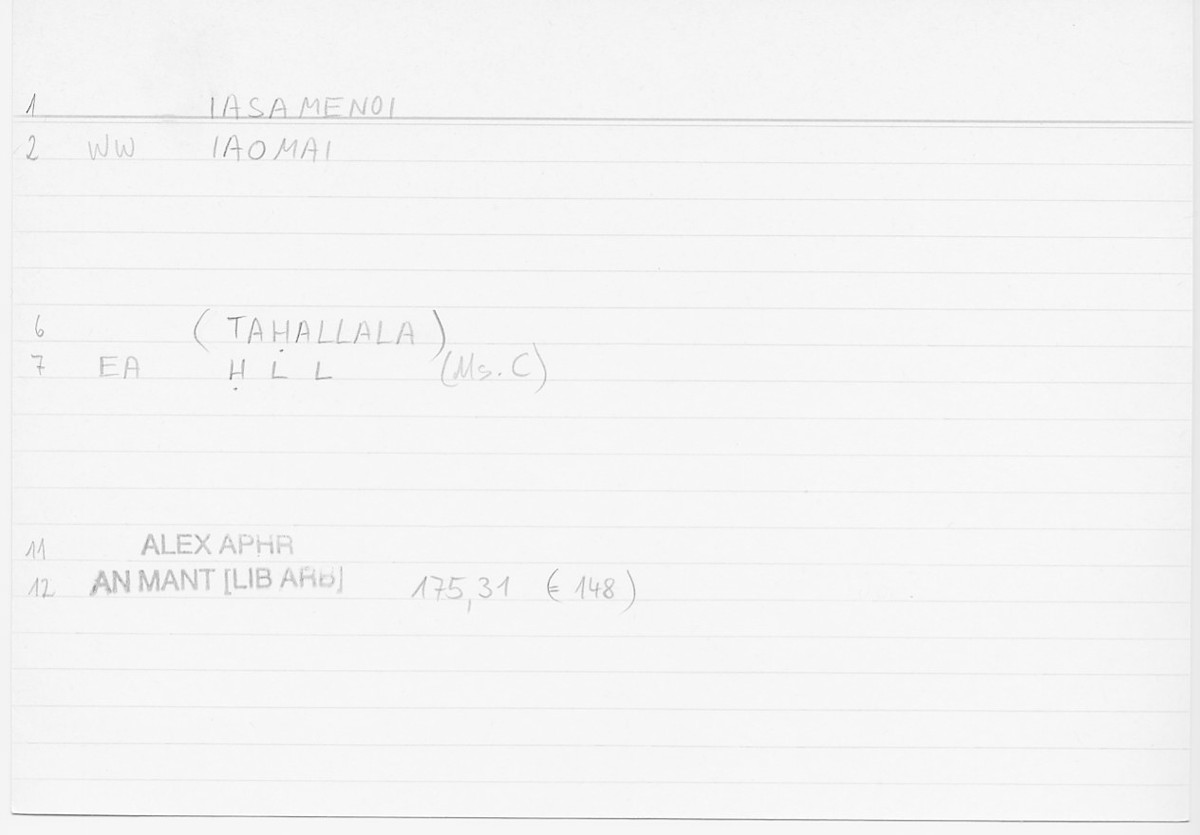 1 IASAMENOI
2 WW IAOMAI
6 (TAḤALLALA)
7 EA Ḥ L L (Ms. C)
11 ALEX APHR
12 AN MANT [LIB ARB] 175,31 (€ 148)